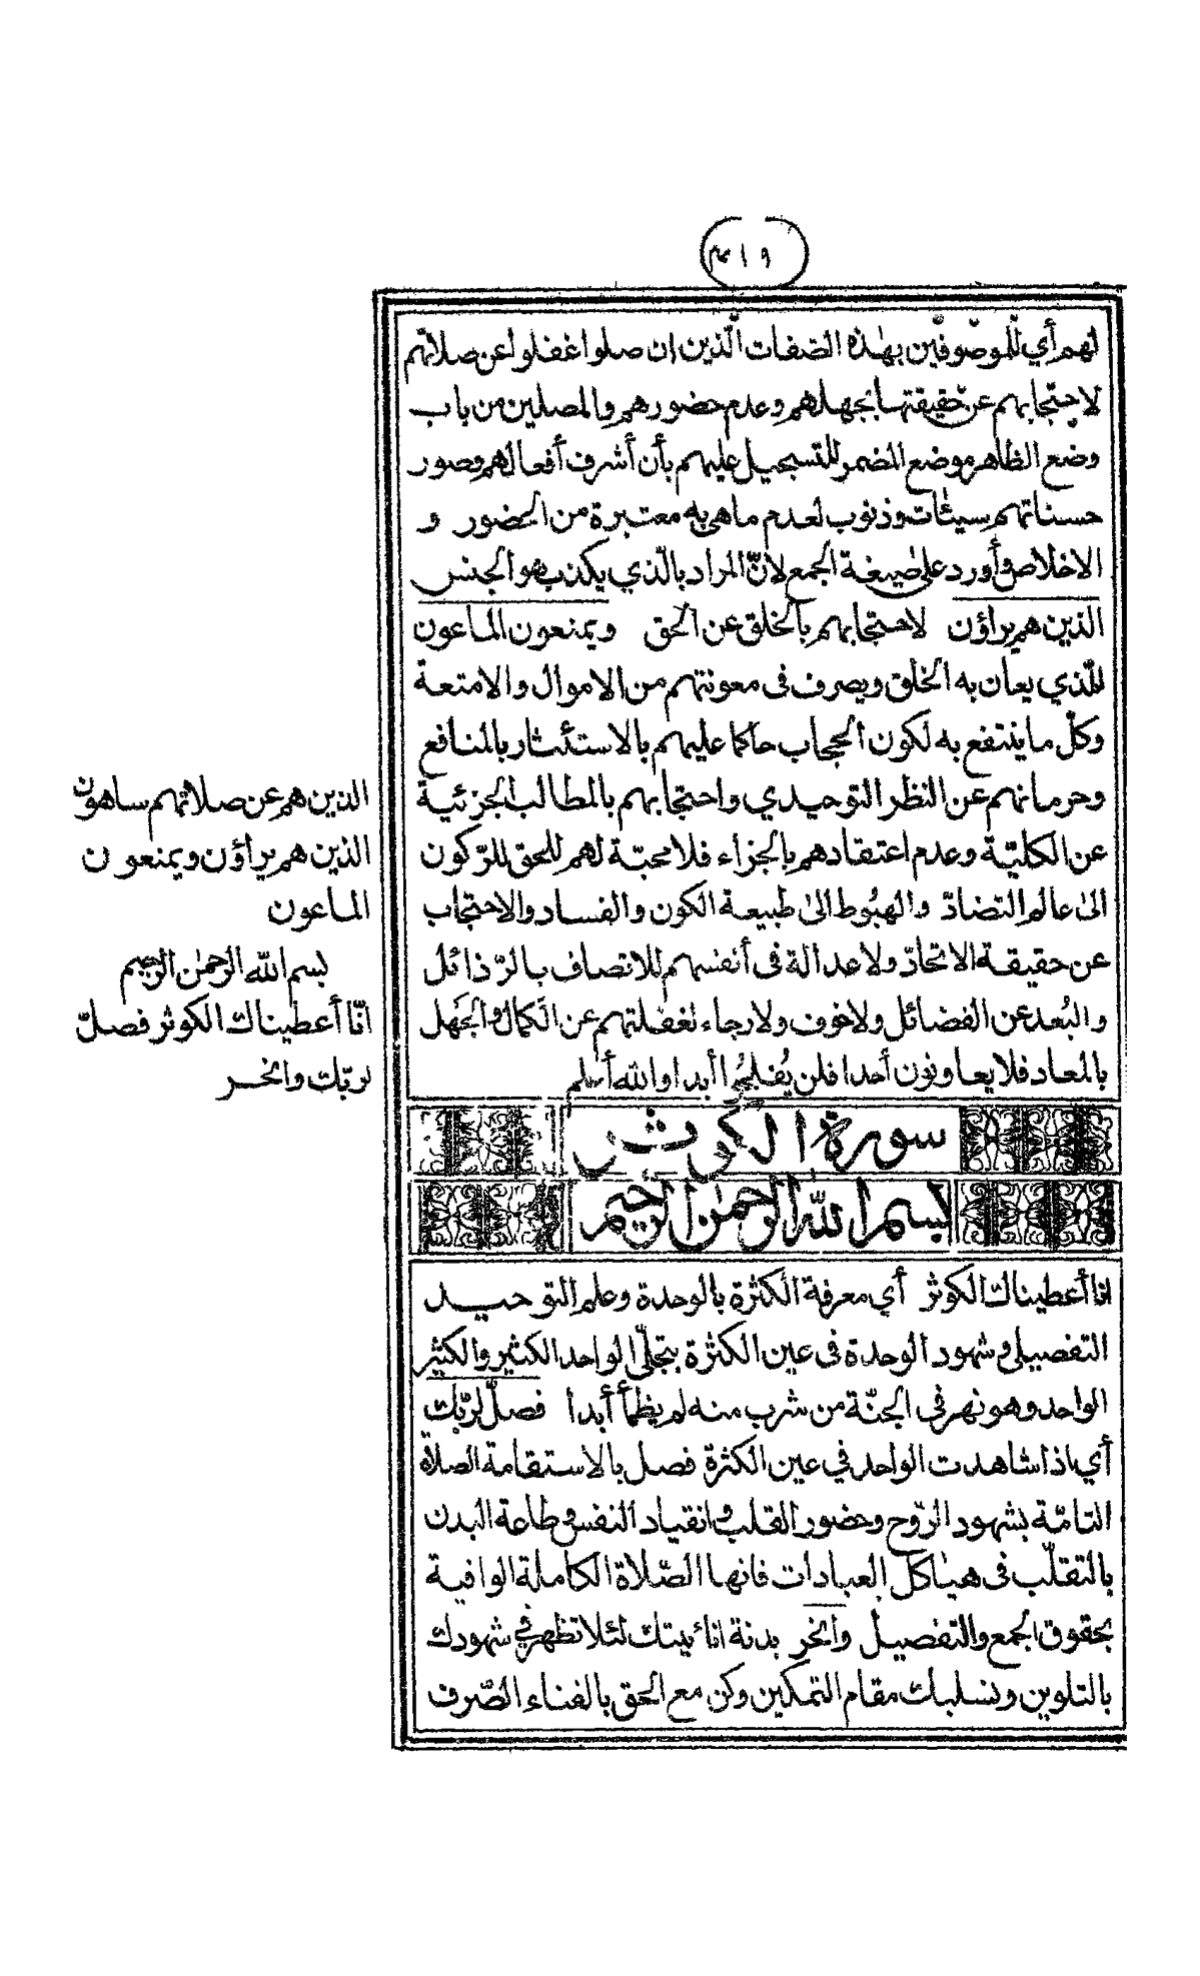 لهم أي للموصوفين بهذه الصفات الّذين ان صلوا غفلوا عن صلاتهم
لاحتجابهم عن حقيقتها بجهلهم وعدم حضورهم والمصلين من باب
وضع الظاهر موضع المضمر للتسجيل عليهم بأن أشرف أفعالهم وصور
حسناتهم سيئات وذنوب لعدم ما هي به معتبرة من الحضور و
الاخلاص وأورد على صيغة الجمع لأنّ المراد بالّذي يكذب هو الجنس
الذين هم يراؤن لاحتجابهم بالخلق عن الحق ويمنعون الماعون
للّذي يعان به الخلق ويصرف في معونتهم من الاموال والامتعة
وكلّ ما ينتفع به لكون الحجاب حاكما عليهم بالاستئثار بالمنافع
وحرمانهم عن النظر التوحيدي واحتجابهم بالمطالب الجزئية
عن الكليّة وعدم اعتقادهم بالجزاء فلا محبّة لهم للحق للرّكون
الى عالم التضادّ والهبُوط الى طبيعة الكون والفساد والاحتجاب
عن حقيقة الاتحادّ ولا عدالة في أنفسهم للاتصاف بالرّذائل
والبُعد عن الفضائل ولا خوف ولا رجاء لغفلتهم عن الكمال والجَهل
بالمعاد فلا يعاونون أحدا فلن يُفلحُوا أبدا والله أعلم
الذين هم عن صلاتهم ساهون
الذين هم يراؤن ويمنعون
الماعون
بسم الله الرّحمن الرّحيم
انّا أعطيناك الكوثر فصلّ
لربّك وانحر
سورة الكوثر
بسم الله الرحمن الرحيم
انا أعطيناك الكوثر أي معرفة الكثرة بالوحدة وعلم التوحيد
التفصيلي وشهود الوحدة في عين الكثرة بتجلّي الواحد الكثير والكثير
الواحد وهو نهر في الجنّة من شرب منه لم يظمأ أبدا فصلّ لربّك
أي اذا شاهدت الواحد في عين الكثرة فصل بالاستقامة الصلاة
التامّة بشهود الرّوح وحضور القلب وانقياد النفس وطاعة البدن
بالتقلّب في هياكل العبادات فانها الصّلاة الكاملة الوافية
بحقوق الجمع والتفصيل وانحر بدنة انائيتك لئلا تظهر في شهودك
بالتلوين وتسلبك مقام التمكين وكن مع الحق بالفناء الصّرف